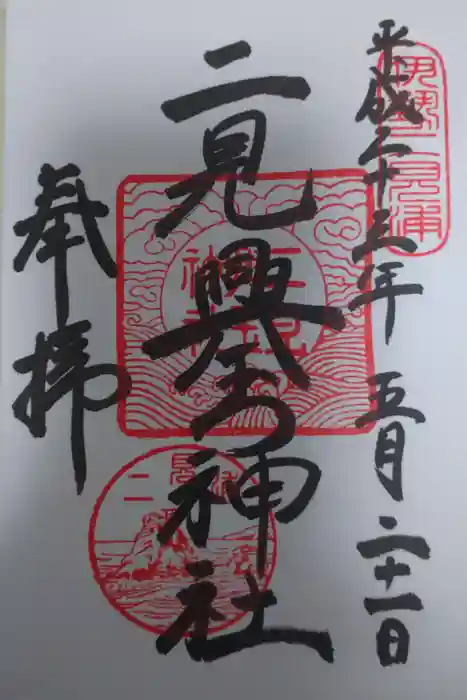 伊勢二見浦
平成二十三年 五月 二十一日
二見興玉神社
奉拝